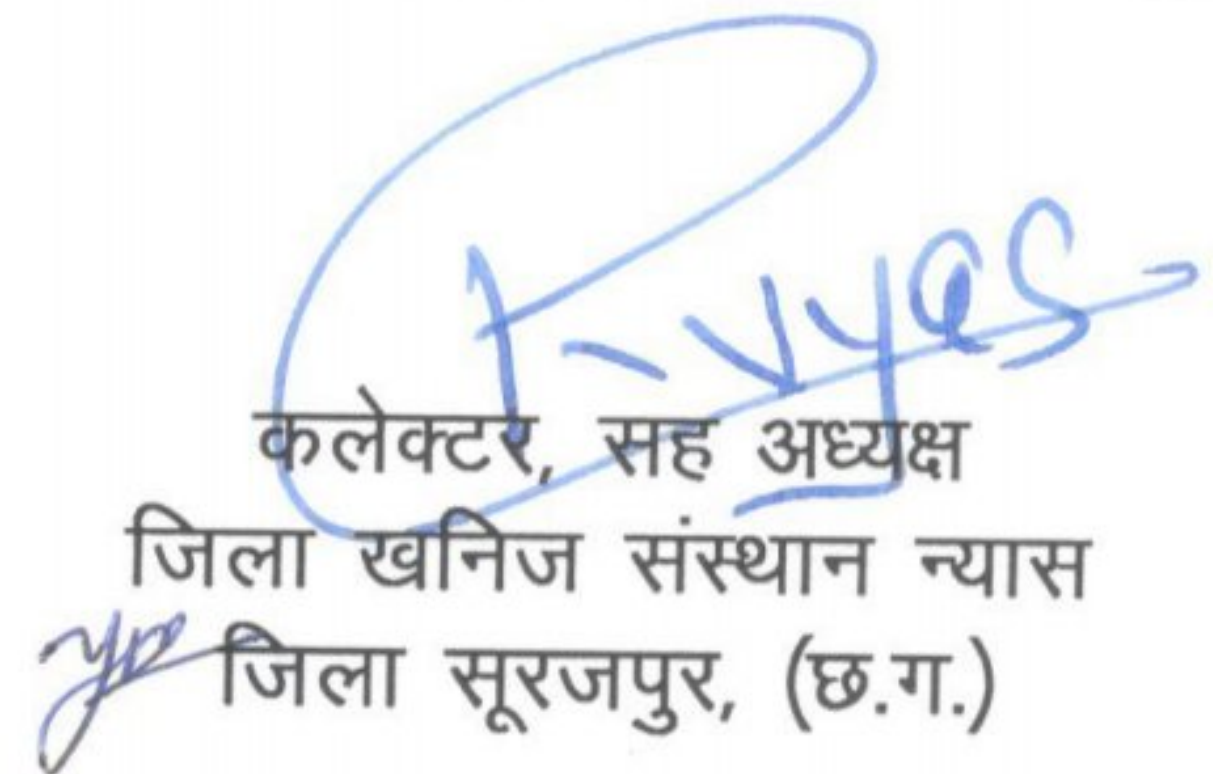 R-Vyas
कलेक्टर, सह अध्यक्ष
जिला खनिज संस्थान न्यास
जिला सूरजपुर, (छ.ग.)